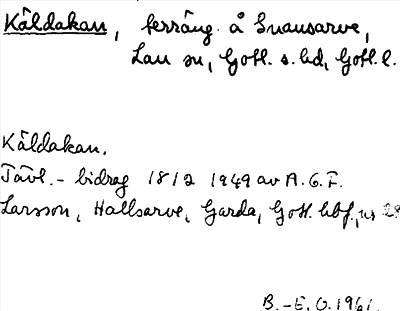 Kåldakan, terräng å Snausarve,
Lau sn, Gotl. s. hd, Gotl. l.
Kåldakan.
Tävl.-bidrag 18/2 1949 av A. G. F.
Larsson, Hallsarve, Garda, Gotl. hbf., nr 28
B.-E. O. 1961.